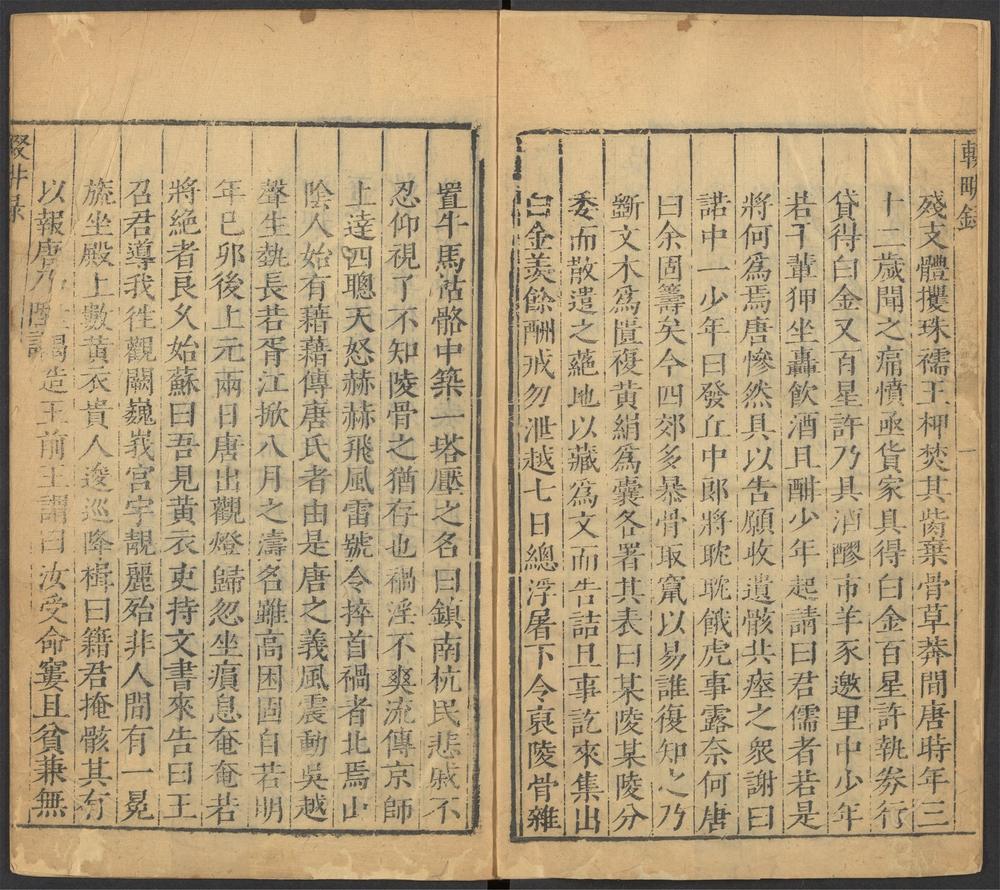 輟耕錄
殘支體攫珠襦玉柙焚其胔棄骨草莽間唐時年三
十二歲聞之痛憤亟貨家具得白金百星許執券行
貸得白金又百星許乃具酒醪市羊豕邀里中少年
若干輩狎坐轟飲酒且酣少年起請曰君儒者若是
將何爲焉唐慘然具以告願收遺骸共瘞之衆謝曰
諾中一少年曰發丘中郎將眈眈餓虎事露奈何唐
曰余固籌矣今四郊多暴骨取竄以易誰復知之乃
斵文木爲匱複黃絹爲囊各署其表曰某陵某陵分
委而散遣之蕝地以藏爲文而告詰旦事訖來集出
白金羨餘酬戒勿泄越七日總浮屠下令裒陵骨雜
置牛馬沽骼中築一塔壓之名曰鎮南杭民悲戚不
忍仰視了不知陵骨之猶存也禍淫不爽流傳京師
上達四聰天怒赫赫飛風雷號令捽首禍者北焉山
陰人始有藉藉傳唐氏者由是唐之義風震動吳越
聲生埶長若胥江掀八月之濤名雖高困固自若明
年己卯後上元兩日唐出觀燈歸忽坐瘨息奄奄若
將絕者良久始蘇曰吾見黃衣吏持文書來告曰王
召君導我徃觀闕巍峩宮宇靚麗殆非人間有一冕
旒坐殿上數黃衣貴人逡巡降揖曰籍君掩骸其有
以報唐乃謁造王前王謂曰汝受命窶且貧兼無
輟耕錄